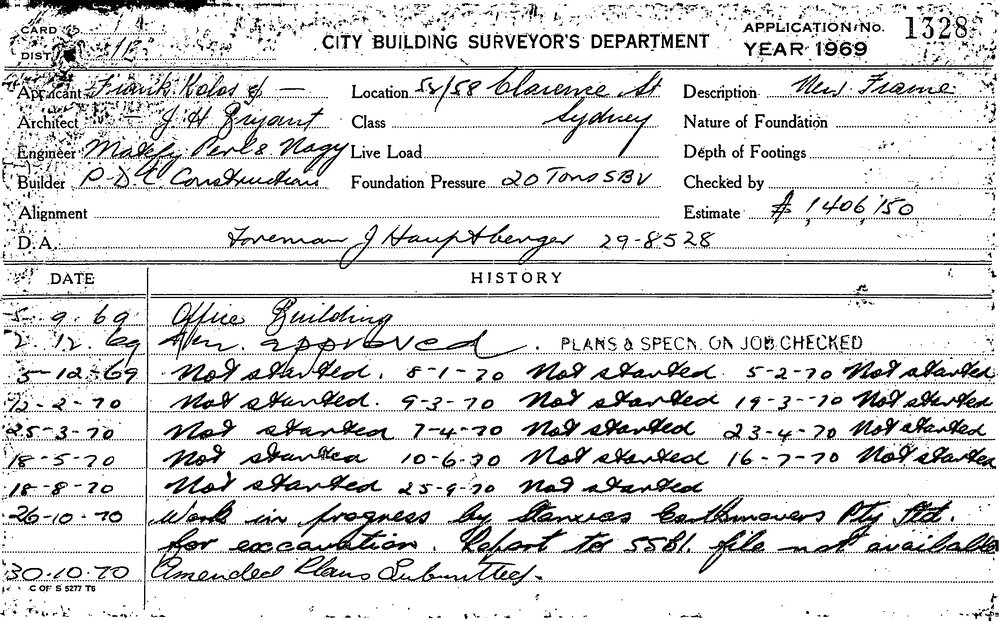 CARD
CITY BUILDING SURVEYOR'S DEPARTMENT
APPLICATION No. 1328
DIST.
YEAR 1969
Applicant Frank Kolos & — Location 52/58 Clarence St Description New Frame
Architect — J H Bryant Class Sydney Nature of Foundation
Engineer Perl & Nagy Live Load Depth of Footings
Builder P.D.C Constructions Foundation Pressure 20 Tons SBV Checked by
Alignment Estimate $ 1,406,150
D.A. Foreman J Hauptberger 29-8528
DATE HISTORY
5. 9. 69 Office Building
2. 12. 69 approved. PLANS & SPECN. ON JOB CHECKED
5-12-69 Not started. 8-1-70 Not started. 5-2-70 Not started
12-2-70 Not started. 9-3-70 Not started 19-3-70 Not started
25-3-70 Not started 7-4-70 Not started 23-4-70 Not started
18-5-70 Not started 10-6-70 Not started 16-7-70 Not started
18-8-70 Not started 25-9-70 Not started
26-10-70 Work in progress by Earthmovers Pty Ltd.
for exccavation. Report to 5581. file not available
30.10.70 Amended Plans Submitted.
C OF S 5277 T6